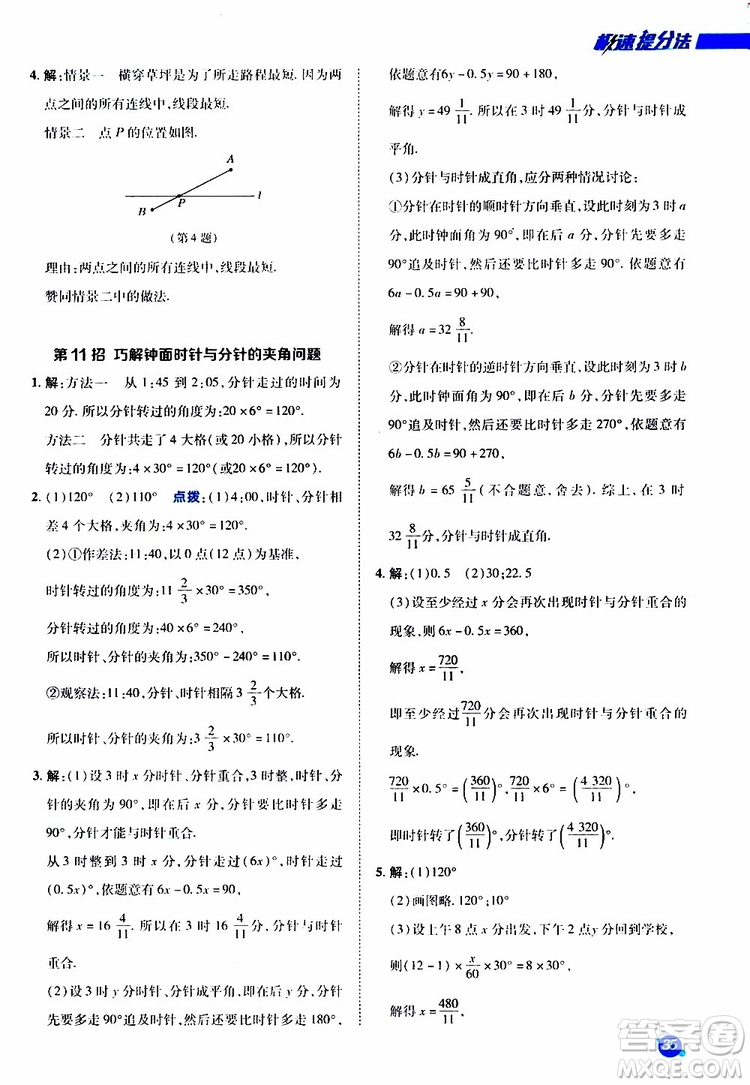 极速提分法
4. 解:情景一 横穿草坪是为了所走路程最短. 因为两
点之间的所有连线中,线段最短.
情景二 点 P 的位置如图.
A
P
l
B
(第 4 题)
理由:两点之间的所有连线中,线段最短.
赞同情景二中的做法.
第 11 招 巧解钟面时针与分针的夹角问题
1. 解:方法一 从 1:45 到 2:05,分针走过的时间为
20 分. 所以分针转过的角度为:20×6°=120°.
方法二 分针共走了 4 大格(或 20 小格),所以分针
转过的角度为:4×30°=120°(或 20×6°=120°).
2. (1)120° (2)110° 点拨:(1)4:00,时针、分针相
差 4 个大格,所以夹角为:4×30°=120°.
(2)①作差法:11:40,以 0 点(12 点)为基准,
时针转过的角度为:11 2/3 ×30°=350°,
分针转过的角度为:40×6°=240°.
所以时针、分针的夹角为:350°-240°=110°.
②观察法:11:40,时针、分针相隔 3 2/3 个大格.
所以时针、分针的夹角为:3 2/3 ×30°=110°.
3. 解:(1)设 3 时 x 分时针、分针重合,三时整时时针、分
针的夹角为 90°,那么在整个过程中分针要追及时针
90°,分针才能与时针重合.
从 3 时整到 3 时 x 分,分针走过(6x)°,时针走过
(0.5x)°,依题意有6x-0.5x=90,
解得 x=16 4/11. 所以从 3 时 16 4/11 分,分针与时针
重合.
(2)设 3 时 y 分时针、分针成平角,在 y 分钟内,分针
先要多走 90°与时针重合,然后还要再多走180°,
依题意有6y-0.5y=90+180,
解得 y=49 1/11. 所以在 3 时 49 1/11 分,分针与时针成
平角.
(3)分针与时针成直角,应分两种情况讨论:
①分针在时针的顺时针方向垂直,设此时刻为 3 时 a
分,此时钟面角为 90°,即在 a 分,分针先要多走
90°追及时针,然后还要多走 90°. 依题意有
6a-0.5a=90+90,
解得 a=32 8/11.
②分针在时针的逆时针方向垂直,设此时刻为 3 时 b
分,此时钟面角为 90°,即在 b 分,分针先要多走
90°追及时针,然后还要多走 270°,依题意有
6b-0.5b=90+270,
解得 b=65 5/11(不合题意,舍去). 综上,在 3 时
32 8/11分,分针与时针成直角.
4. 解:(1)0.5 (2)30;22.5
(3)设至少经过 x 分会再次出现时针与分针重合的
现象,则 6x-0.5x=360,
解得 x=720/11,
即至少经过720/11分会再次出现时针与分针重合的
现象.
720/11×0.5°=(360/11)°,720/11×6°=(4 320/11)°,
即时针转了(360/11)°,分针转了(4 320/11)°.
5. 解:(1)120°
(2)画图略. 120°;10°
(3)设上午 8 点 x 分出发,下午 2 点y分回到学校,
则(12-1)×x/60×30=8×30+x/60×30,
解得 x=480/11,
35
答案圈
MXQE.COM